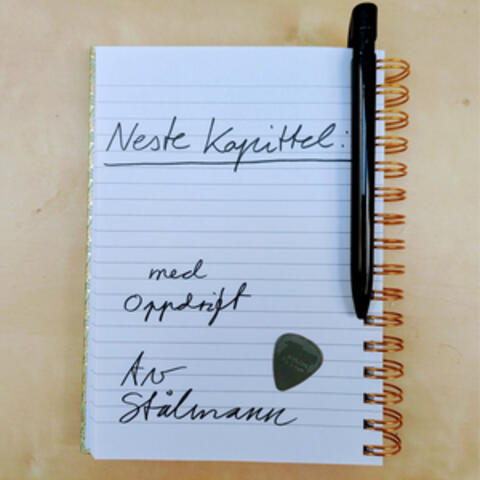 Neste Kapittel:
med
Oppdrift
Av
Stålmann